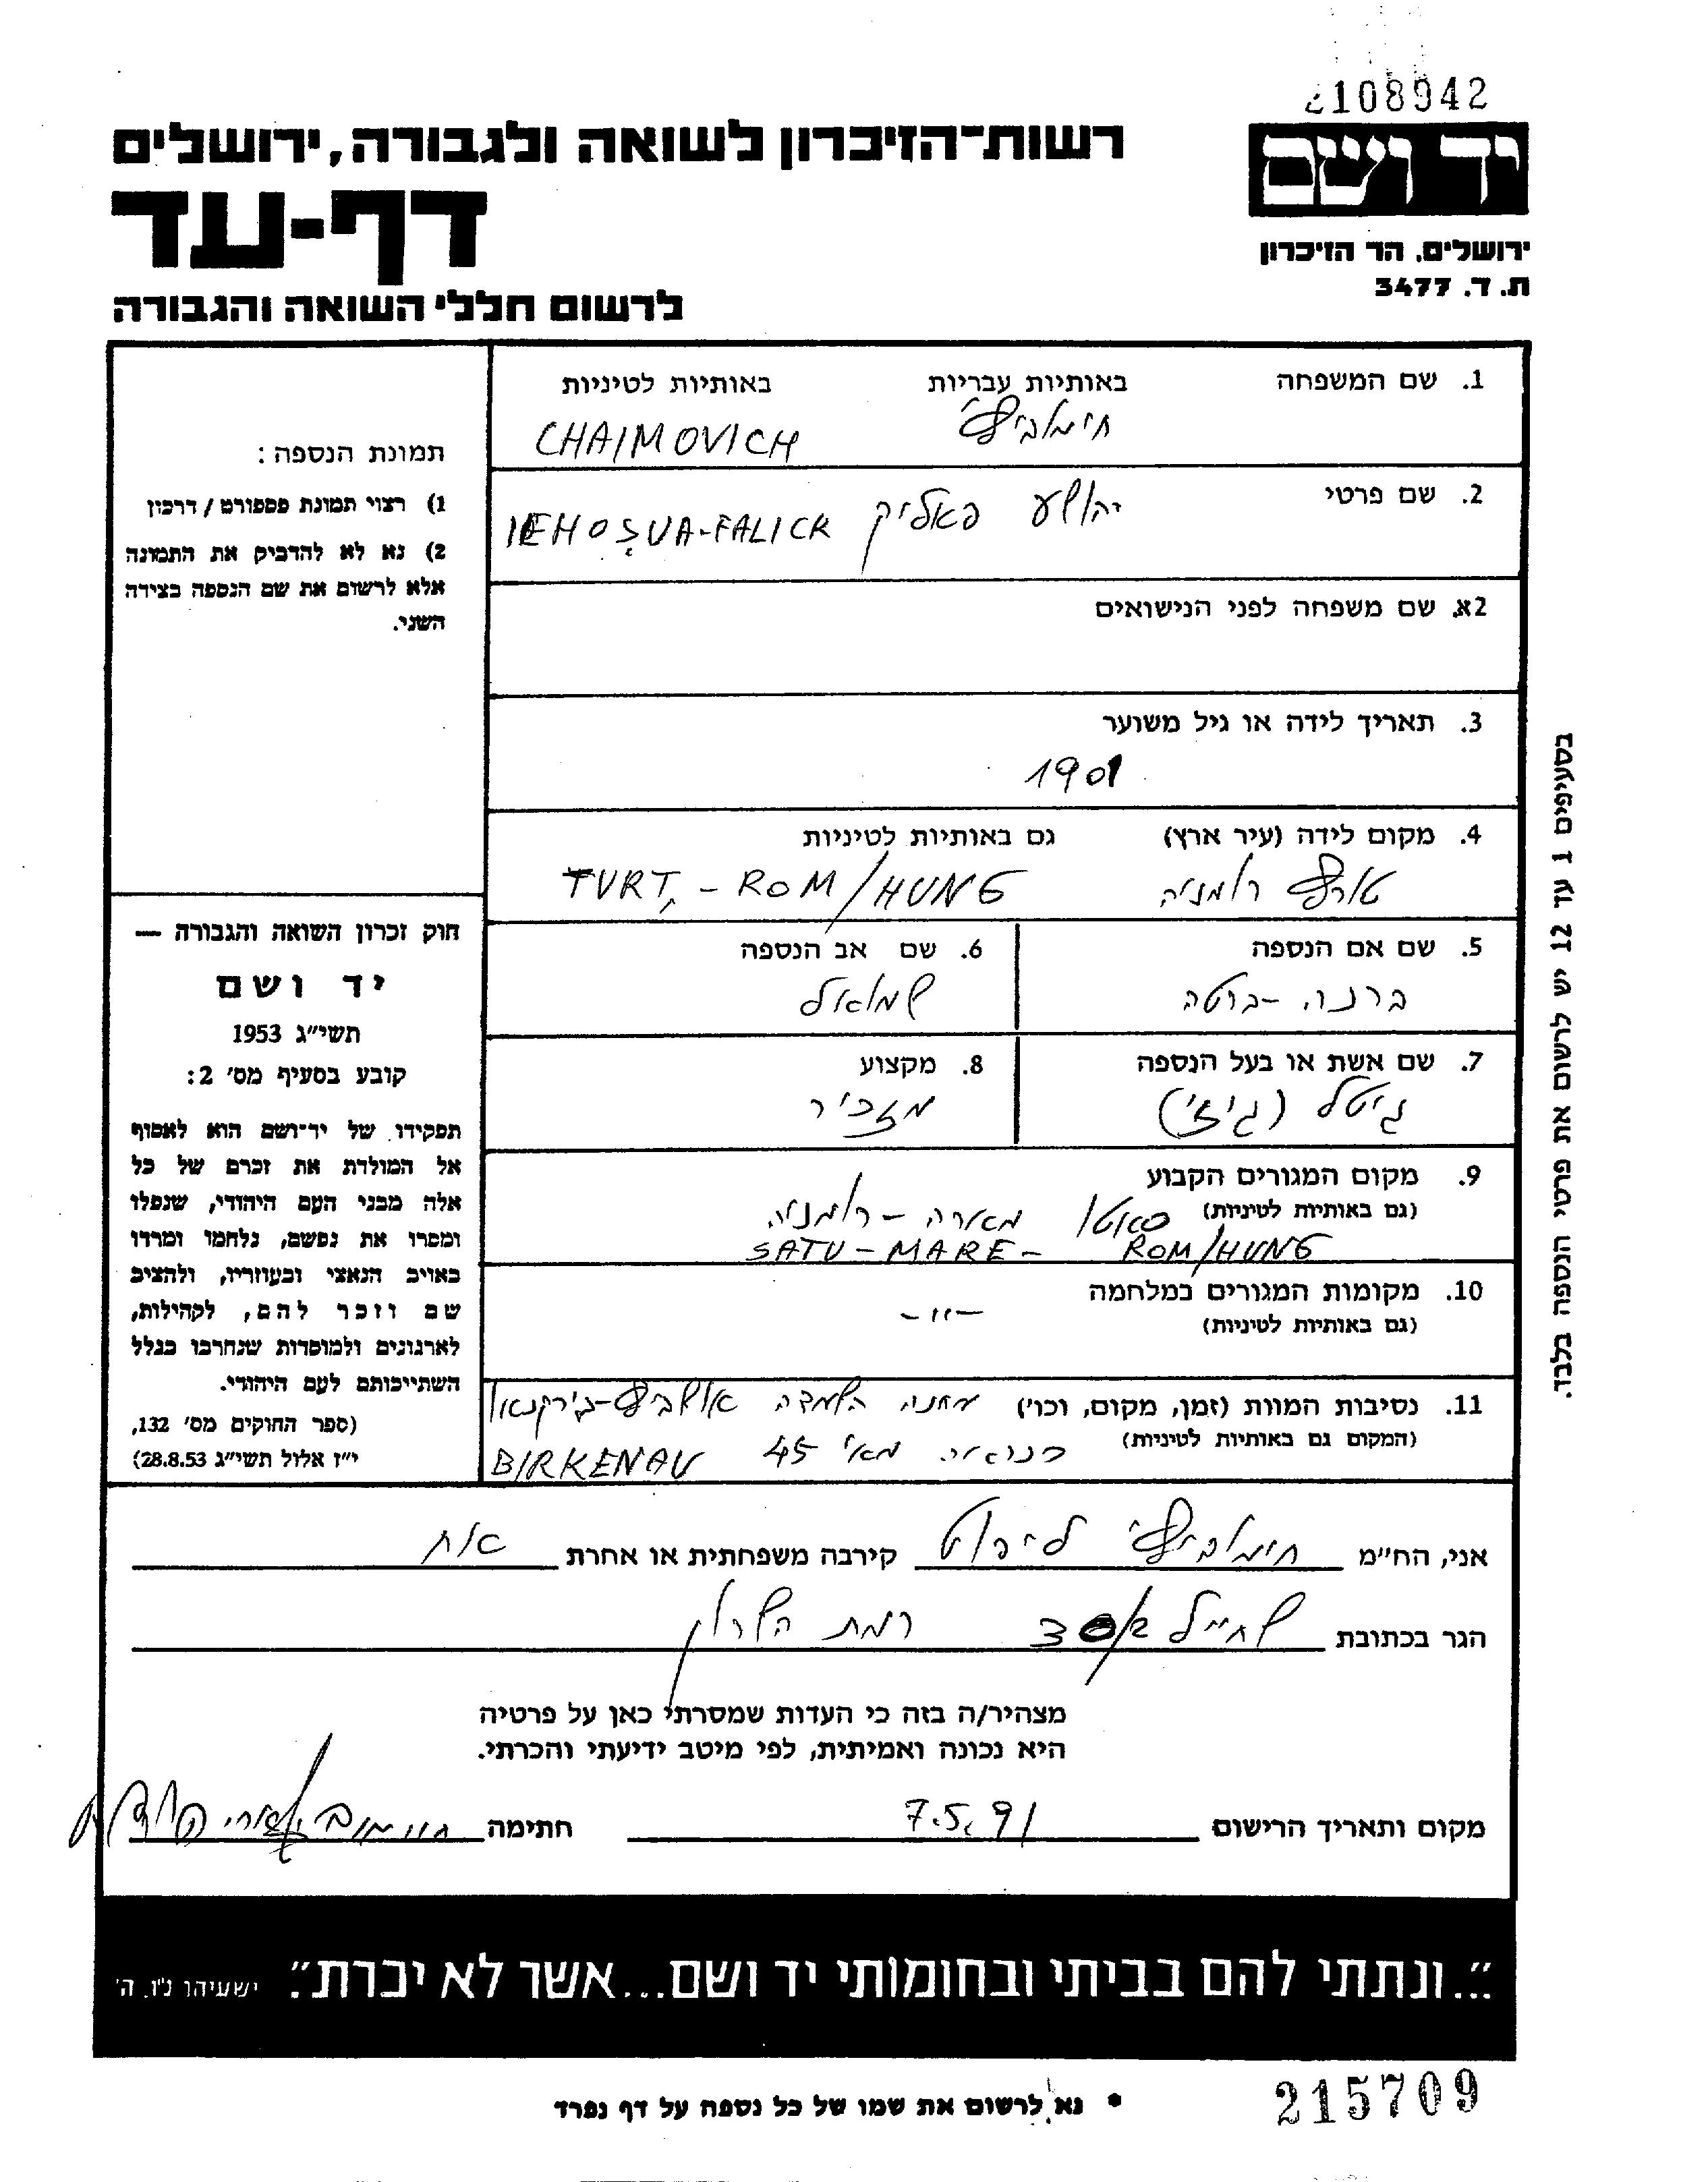 2108942
רשות־הזיכרון לשואה ולגבורה, ירושלים
יד ושם
דף-עד
ירושלים, הר הזיכרון
ת. ד. 3477
לרשום חללי השואה והגבורה
1. שם המשפחה באותיות עבריות באותיות לטיניות
חימוביץ' CHAIMOVICH
2. שם פרטי
יהושע פאליק IEHOȘUA-FALICK
2א. שם משפחה לפני הנישואים
3. תאריך לידה או גיל משוער
1901
4. מקום לידה (עיר ארץ) גם באותיות לטיניות
טורץ רומניה TURȚ - ROM/HUNG
5. שם אם הנספה 6. שם אב הנספה
ברטה שמואל
7. שם אשת או בעל הנספה 8. מקצוע
גיטל (גיזי) מזכיר
9. מקום המגורים הקבוע
(גם באותיות לטיניות) סאטו מארה - רומניה
SATU-MARE- ROM/HUNG
10. מקומות המגורים במלחמה
(גם באותיות לטיניות) -"-
11. נסיבות המוות (זמן, מקום, וכו') מחנה השמדה אושביץ-בירקנאו
(המקום גם באותיות לטיניות) מאי 45 BIRKENAU
תמונת הנספה:
1) רצוי תמונת פספורט / דרכון
2) נא לא להדביק את התמונה
אלא לרשום את שם הנספה בצידה
השני.
חוק זכרון השואה והגבורה —
יד ושם
תשי"ג 1953
קובע בסעיף מס' 2:
תפקידו של יד־ושם הוא לאסוף
אל המולדת את זכרם של כל
אלה מבני העם היהודי, שנפלו
ומסרו את נפשם, נלחמו ומרדו
באויב הנאצי ובעוזריו, ולהציב
שם וזכר להם, לקהילות,
לארגונים ולמוסדות שנחרבו בגלל
השתייכותם לעם היהודי.
(ספר החוקים מס' 132,
י"ז אלול תשי"ג 28.8.53)
בסעיפים 1 עד 12 יש לרשום את פרטי הנספה בלבד.
אני, הח"מ חימוביץ' ליפוט קירבה משפחתית או אחרת אח
הגר בכתובת רמת השרון
מצהיר/ה בזה כי העדות שמסרתי כאן על פרטיה
היא נכונה ואמיתית, לפי מיטב ידיעתי והכרתי.
מקום ותאריך הרישום 7.5.91 חתימה
"...ונתתי להם בביתי ובחומותי יד ושם...אשר לא יכרת". ישעיהו נ"ו, ה'
* נא לרשום את שמו של כל נספה על דף נפרד
215709